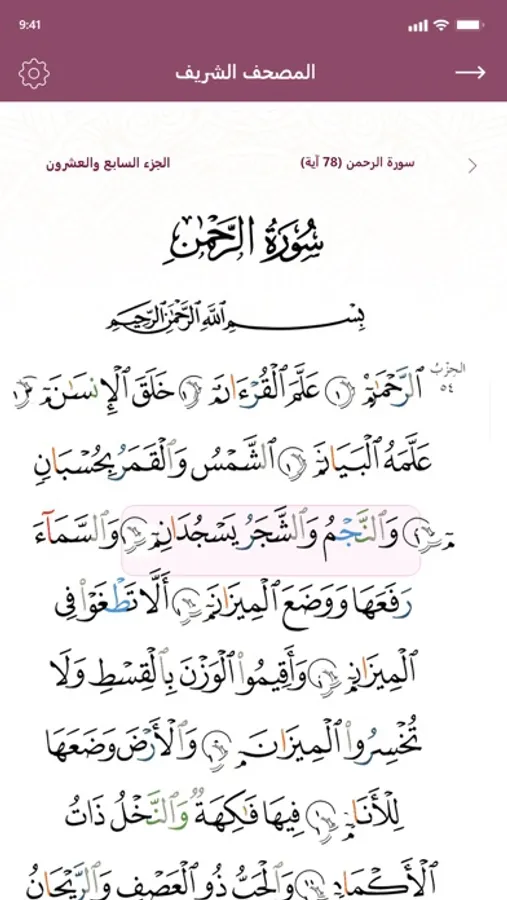 9:41
المصحف الشريف
سورة الرحمن (78 آية)
الجزء السابع والعشرون
سُورَةُ الرَّحْمَٰنِ
بِسْمِ اللَّهِ الرَّحْمَٰنِ الرَّحِيمِ
الحِزْبُ
٥٤
ٱلرَّحْمَٰنُ عَلَّمَ ٱلْقُرْءَانَ خَلَقَ ٱلْإِنسَٰنَ
عَلَّمَهُ ٱلْبَيَانَ ٱلشَّمْسُ وَٱلْقَمَرُ بِحُسْبَانٍ
وَٱلنَّجْمُ وَٱلشَّجَرُ يَسْجُدَانِ وَٱلسَّمَآءَ
رَفَعَهَا وَوَضَعَ ٱلْمِيزَانَ أَلَّا تَطْغَوْا۟ فِى
ٱلْمِيزَانِ وَأَقِيمُوا۟ ٱلْوَزْنَ بِٱلْقِسْطِ وَلَا
تُخْسِرُوا۟ ٱلْمِيزَانَ وَٱلْأَرْضَ وَضَعَهَا
لِلْأَنَامِ فِيهَا فَٰكِهَةٌ وَٱلنَّخْلُ ذَاتُ
ٱلْأَكْمَامِ وَٱلْحَبُّ ذُو ٱلْعَصْفِ وَٱلرَّيْحَانُ